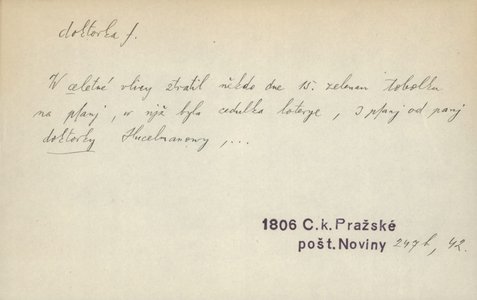 doktorka f.
W celetné vlicy ztratil někdo dne 15. zelenau tobolku
na psanj, w njž byla cedulka loterye, 3 psanj od panj
doktorky Hucelmanowy,...
1806 C.k.Pražské
pošt.Noviny 247b, 42.